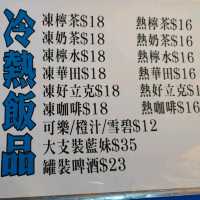 冷熱飯品
凍檸茶$18 熱檸茶$16
凍奶茶$18 熱奶茶$16
凍檸水$18 熱檸水$16
凍華田$18 熱華田$16
凍好立克$18 熱好立克$16
凍咖啡$18 熱咖啡$16
可樂/橙汁/雪碧$12
大支裝藍妹$35
罐裝啤酒$23